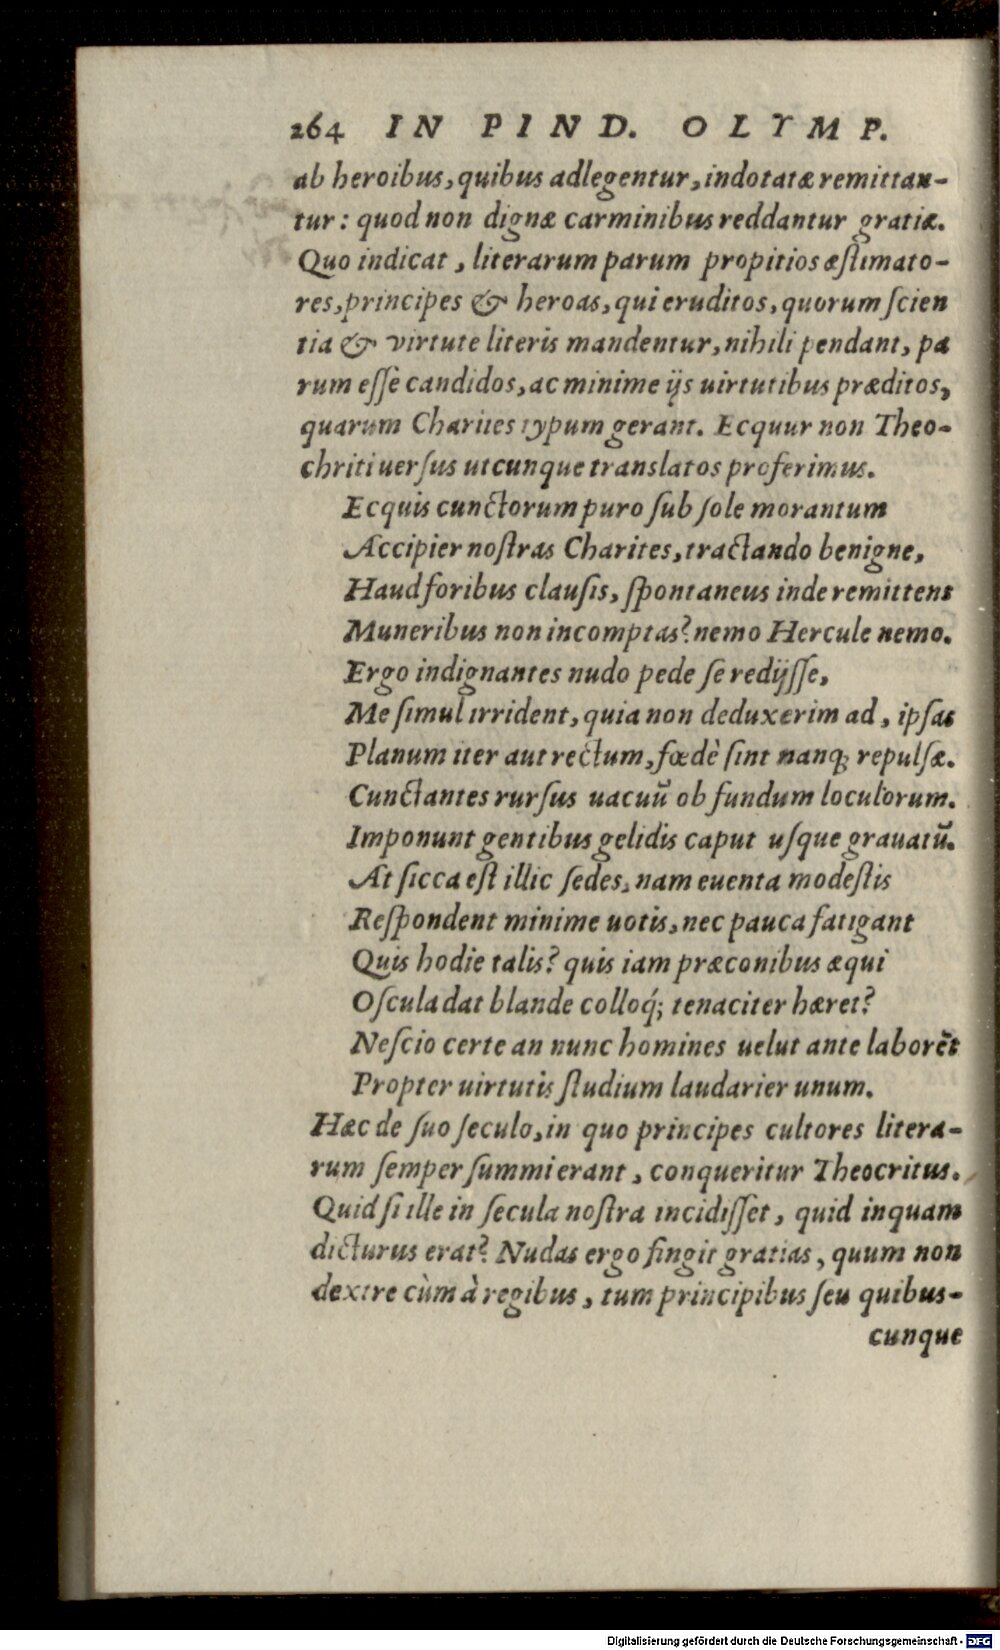 264 IN PIND. OLYMP.
ab heroibus, quibus adlegentur, indotatæ remittan-
tur: quod non dignæ carminibus reddantur gratiæ.
Quo indicat, literarum parum propitios æſtimato-
res, principes & heroas, qui eruditos, quorum ſcien
tia & virtute literis mandentur, nihili pendant, pa
rum eſſe candidos, ac minime ijs uirtutibus præditos,
quarum Charites typum gerant. Ecquur non Theo-
chriti uerſus utcunque translatos proferimus.
Ecquis cunctorum puro ſub ſole morantum
Accipier noſtras Charites, tractando benigne,
Haud foribus clauſis, ſpontaneus inde remittens
Muneribus non incomptas? nemo Hercule nemo.
Ergo indignantes nudo pede ſe redijſſe,
Me ſimul irrident, quia non deduxerim ad, ipſas
Planum iter aut rectum, fœdè ſint nanq; repulſæ.
Cunctantes rurſus uacuũ ob fundum loculorum.
Imponunt gentibus gelidis caput uſque grauatũ.
At ſicca eſt illic ſedes, nam euenta modeſtis
Reſpondent minime uotis, nec pauca fatigant
Quis hodie talis? quis iam præconibus æqui
Oſcula dat blande colloq́; tenaciter hæret?
Neſcio certe an nunc homines uelut ante laborẽt
Propter uirtutis ſtudium laudarier unum.
Hæc de ſuo ſeculo, in quo principes cultores litera-
rum ſemper ſummi erant, conqueritur Theocritus.
Quid ſi ille in ſecula noſtra incidiſſet, quid inquam
dicturus erat? Nudas ergo fingit gratias, quum non
dextre cùm à regibus, tum principibus ſeu quibus-
cunque
Digitalisierung gefördert durch die Deutsche Forschungsgemeinschaft - DFG